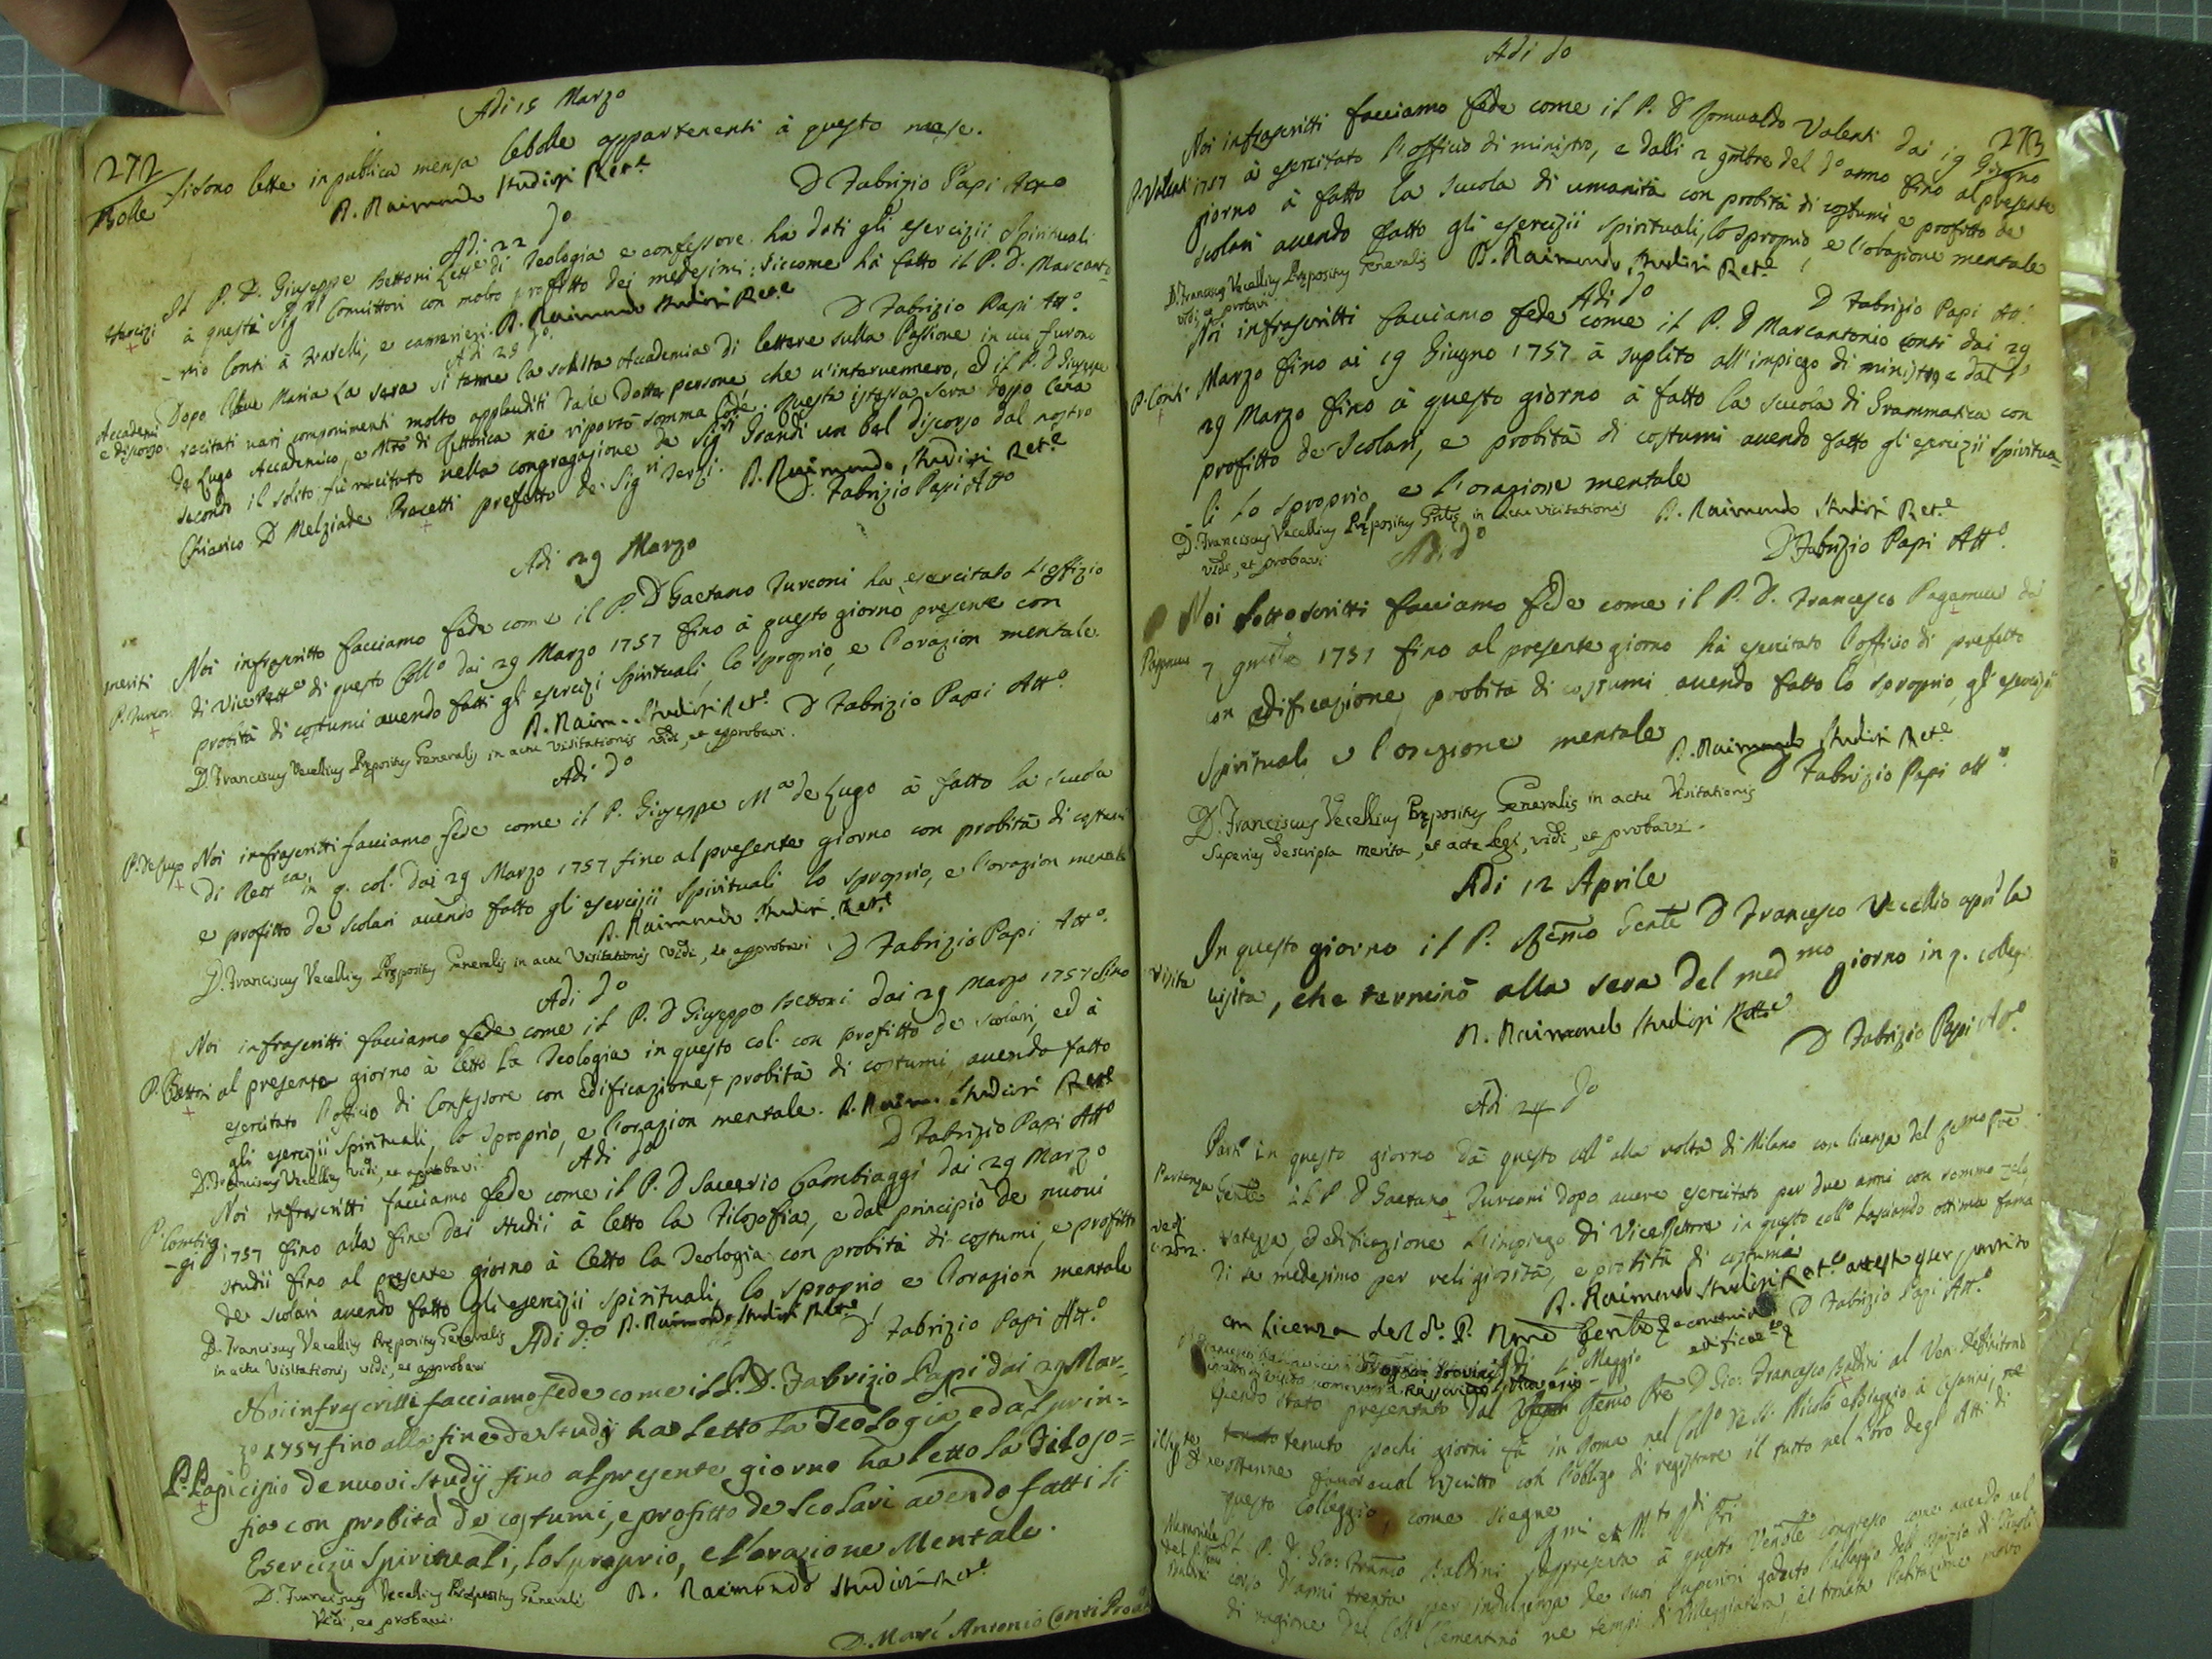 Adi 15 Marzo
272
Bolle
Si sono lette in publica mensa le bolle appartenenti à questo mese.
D. Raimondo Studiosi Ret.e
D Fabrizio Papi Atto
Adi 22 do
Esercizi
Il P. D. Giuseppe Bettoni Lett.e di Teologia e confessore ha dati gli esercizii Spirituali
à questi Sig.ri Convittori con molto profitto dei medesimi; siccome hà fatto il P. D. Marcanto-
-nio Conti à Fratelli, e camerieri. D. Raimondo Studiosi Ret.e
D Fabrizio Papi Att.o
Adi 29 do.
Accademia
e discorso
Dopo l'Ave Maria la sera si tenne la solita Accademia di lettere sulla Passione in cui furono
recitati varj componimenti molto applauditi dale dotte persone che v'intervennero, ed il P. D Giuseppe
de Lugo Accademico, e Mro di Rettorica ne riportò somma lode. Questa istessa sera doppo cena
secondo il solito fù recitato nella congregazione de Sig.ri Grandi un bel discorso dal nostro
Chierico D Melziade prefetto de Sig.ri Terzi. D. Raimondo Studiosi Ret.e
D. Fabrizio Papi Atto
Adi 29 Marzo
meriti
P. Turconi
Noi infrascritto facciamo fede come il P. D Gaetano Turconi ha esercitato l'offizio
di ViceRett.e di questo Coll.o dai 29 Marzo 1757 fino à questo giorno presente con
probità di costumi avendo fatti gli esercizi spirituali, lo sproprio, e l'orazion mentale.
D. Raim. Studiosi Ret.e D Fabrizio Papi Att.o
D. Franciscus Vecellius Præpositus Generalis in actu Visitationis vidi, et approbavi.
Adi do
P. de Lugo
Noi infrascritti facciamo fede come il P. Giuseppe M.a de Lugo à fatto la scuola
di Rett.ca in q. col. dai 29 Marzo 1757 fino al presente giorno con probità di costumi
e profitto de scolari avendo fatto gli esercizii spirituali lo sproprio, e l'orazion mentale
D. Raimondo Studiosi Ret.e
D. Franciscus Vecellius Præpositus Generalis in actu Visitationis vidi, et approbavi D Fabrizio Papi Att.o
Adi do
P. Bettoni
Noi infrascritti facciamo fede come il P. D Giuseppe Bettoni dai 29 Marzo 1757 fino
al presente giorno à letto la Teologia in questo col. con profitto de scolari, ed à
esercitato l'officio di Confessore con edificazione, e probità di costumi, avendo fatto
gli esercizii spirituali, lo sproprio, e l'orazion mentale. D. Raim. Studiosi Rett.e
D Fabrizio Papi Att.o
D. Franciscus Vecellius vidi, et approbavi
Adi do
P. Cambiag
-gi
Noi infrascritti facciamo fede come il P. D Saverio Cambiaggi dai 29 Marzo
1757 fino alla fine dai studii à letto la Filosofia, e dal principio de nuovi
studii fino al presente giorno à letto la Teologia con probità di costumi, e profitto
de scolari avendo fatto gli esercizii spirituali, lo sproprio e l'orazion mentale
D. Franciscus Vecellius Præpositus Generalis
in actu Visitationis vidi, et approbavi
Adi d.o D. Raimondo Studiosi Rett.e
D Fabrizio Papi Att.o
P. Papi
Noi infrascritti facciamo fede come il P. D. Fabrizio Papi dai 29 Mar-
zo 1757 fino alla fine de studij ha letto la Teologia, ed al prin-
cipio de nuovi studij fino al presente giorno ha letto la Filoso-
fia con probità de costumi, e profitto de Scolari avendo fatti li
Esercizii Spirituali, lo sproprio, e l'orazione Mentale.
D. Franciscus Vecellius Præpositus Generalis
vidi, et probavi.
D. Raimondo Studiosi Ret.e
D. Marc'Antonio Conti
Adi do
273
P. Valenti
Noi infrascritti facciamo fede come il P. D Romualdo Valenti dai 19 Giugno
1757 à esercitato l'officio di ministro, e dalli 2 9mbre del do anno fino al presente
giorno à fatto la scuola di umanità con probità di costumi e profitto de
scolari avendo fatto gli esercizii spirituali, lo sproprio, e l'orazione mentale
D. Franciscus Vecellius Præpositus Generalis
vidi, et probavi
D. Raimondo Studiosi Ret.e
D Fabrizio Papi Att.o
Adi do
P. Conti
Noi infrascritti facciamo fede come il P. D Marcantonio Conti dai 29
Marzo fino ai 19 Giugno 1757 à suplito all'impiego di ministro e dal do
29 Marzo fino à questo giorno à fatto la scuola di Grammatica con
profitto de Scolari, e probità di costumi avendo fatto gli esercizii spiritua-
li lo sproprio, e l'orazione mentale
D. Franciscus Vecellius Præpositus Gnlis in actu visitationis
vidi, et probavi
D. Raimondo Studiosi Ret.e
D Fabrizio Papi Att.o
Adi do
Noi sottoscritti facciamo fede come il P. D. Francesco dai
7 1757 fino al presente giorno hà esercitato l'officio di prefetto
con edificazione, probità di costumi avendo fatto lo sproprio, gli esercizii
spirituali e l'orazione mentale
D. Raimondo Studiosi Ret.e
D Fabrizio Papi Att.o
D. Franciscus Vecellius Præpositus Generalis in actu Visitationis
superius descripta merita, et acta legi, vidi, et probavi.
Adi 12 Aprile
Visita
In questo giorno il P. Rēmo Genle D Francesco Vecellio aprì la
visita, che terminò alla sera del medmo giorno in q. colleg.
D. Raimondo Studiosi Rett.e
D Fabrizio Papi Att.o
Adi 24 do
Partenza
vedi
Partì in questo giorno da questo coll.o alla volta di Milano con licenza del Rmo Pre
Genle il P. D Gaetano Turconi dopo avere esercitato per due anni con sommo zelo
ed edificazione l'impiego di ViceRettore in questo coll.o lasciando ottima fama
di se medesimo per religiosità, e probità di costumi
D. Raimondo Studiosi Ret.e attesta esser partito
con Licenza del d.o P. Rmo Genle D Fabrizio Papi Att.o
Maggio
Essendo stato presentato dal Rmo Pre D Gio: Francesco Baldini al Ven. Deffinitorio
tenuto pochi giorni fà in Roma nel Coll.o de SS. Nicolò e Biaggio à Cesarini,
ottenne favorevol rescritto coll'obbligo di registrare il tutto nel Libro degl'Atti di
questo Collegio, come siegue
Memoriale
del P.
Baldini
Il P. D. Gio: Franco Baldini rappresenta à questo Venble congresso come avendo nel
corso d'anni trenta per indulgenza de suoi Superiori goduto l'alloggio dell'ospizio di
di ragione del Coll.o Clementino ne tempi di Villeggiatura,